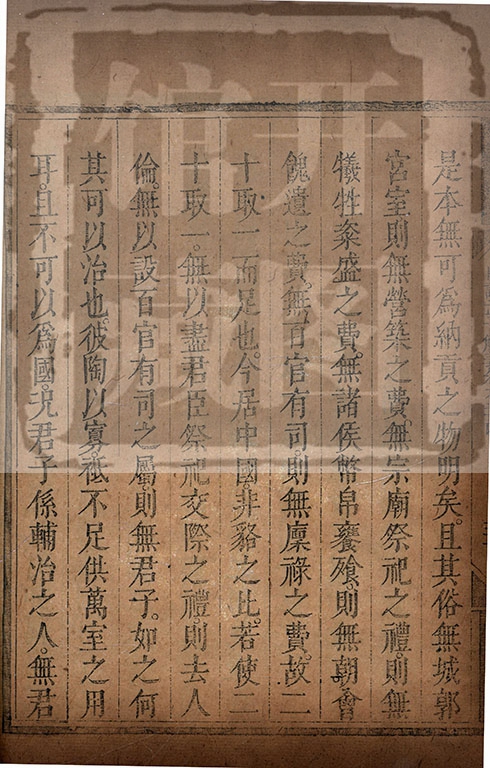 是本無可為納貢之物明矣。且其俗無城郭
宮室則無營築之費。無宗廟祭祀之禮。則無
犧牲粢盛之費。無諸侯幣帛饔飱。則無朝會
餽遺之費。無百官有司。則無廩祿之費。故二
十取一而足也。今居中國。非貉之比。若使二
十取一。無以盡君臣祭祀交際之禮。則去人
倫。無以設百官有司之屬。則無君子。如之何
其可以治也。彼陶以寡。秪不足供萬室之用
耳。且不可以為國。况君子係輔治之人。無君